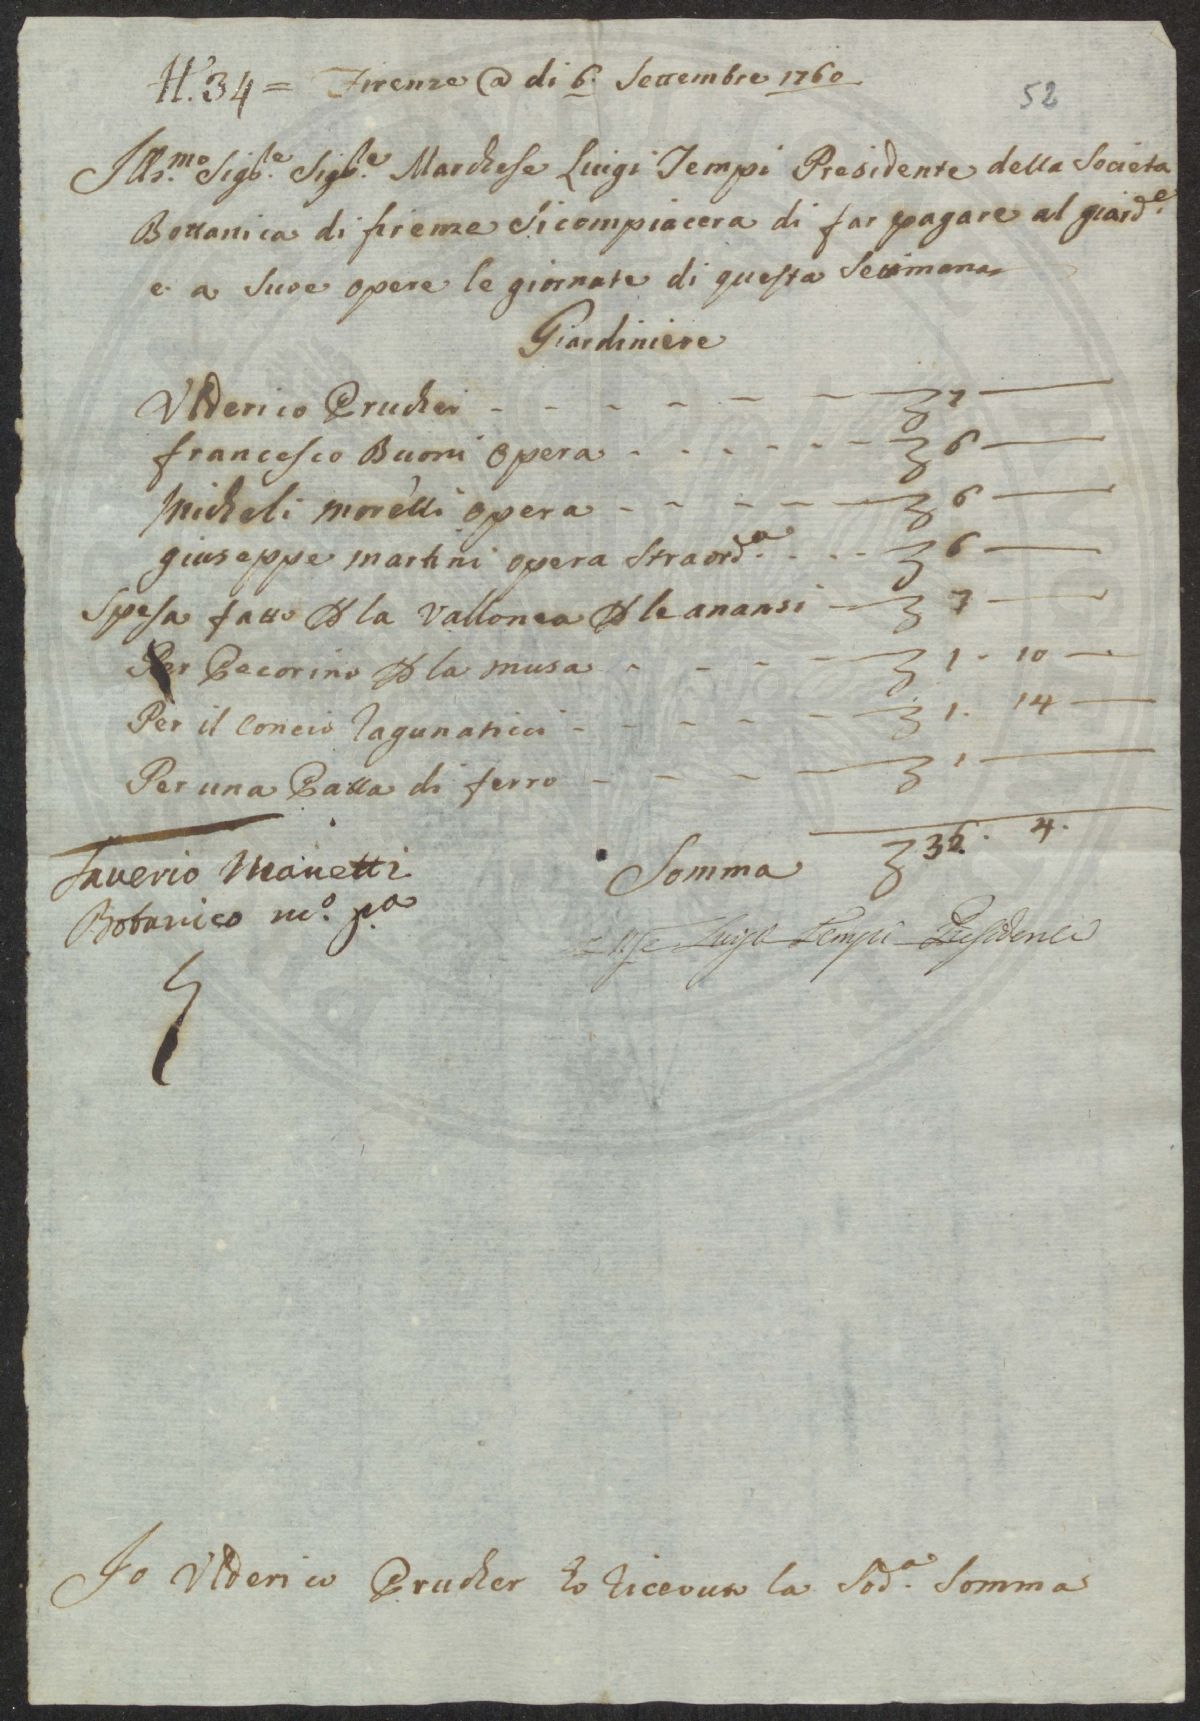 N.° 34 = Firenze @ di 6. Settembre 1760
52
Ill.mo Sig.re Sig.re Marchese Luigi Tempi Presidente della Societa
Bottanica di firenze si compiacera di far pagare al giard.e
e a sue opere le giornate di questa Settimana
Giardiniere
Ulderico Prucher - - - - - - - 7
francesco Buoni opera - - - - - - 6
Micheli morelli opera - - - - - 6
giuseppe martini opera straord.a - - - 6
Spesa fatto p la Vallonea p le anansi - 7
Per Pecorino p la musa - - - - 1 - 10
Per il Concio - - - - - 1. 14
Per una Patta di ferro - - - - 1
Somma 36. 4.
Saverio Manetti
Botanico m.o p.a
Luigi Tempi Presidente
Io Ulderico Prucher ho riceuto la Sod.a Somma